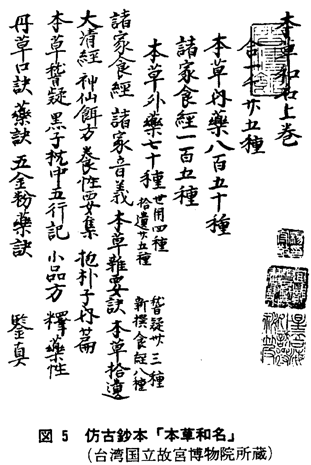 本草和名上巻
合一千廿五種
本草内藥八百五十種
諸家食經一百五種
本草外藥七十種 世用四種 拾遺廿五種 稽疑廿三種 新撰食經八種
諸家食經 諸家音義 本草雜要訣 本草拾遺
大清經 神仙餌方 養性要集 抱朴子内篇
本草稽疑 墨子枕中五行記 小品方 釋藥性
丹草口訣 藥訣 五金粉藥訣 鑒真
図5 仿古鈔本「本草和名」
(台湾国立故宮博物院所蔵)